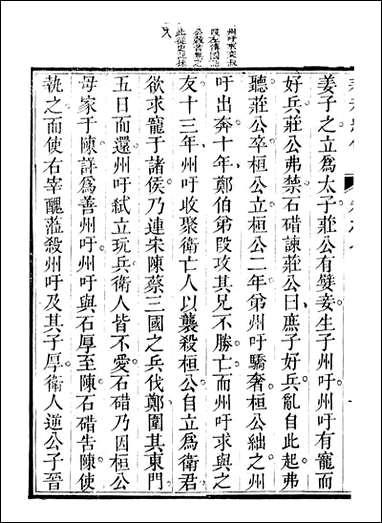 州吁求寵
姜子之立爲太子莊公有嬖妾生子州吁州吁有寵而
好兵莊公弗禁石碏諫莊公曰庶子好兵亂自此起弗
聽莊公卒桓公立桓公二年弟州吁驕奢桓公絀之州
吁出奔十年鄭伯弟段攻其兄不勝亡而州吁求與之
友十三年州吁收聚衛亡人以襲殺桓公自立爲衛君
欲求寵于諸侯乃連宋陳蔡三國之兵伐鄭圍其東門
五日而還州吁弑立玩兵衛人皆不愛石碏乃因桓公
母家于陳詳爲善州吁州吁與石厚至陳石碏告陳使
執之而使右宰醜蒞殺州吁及其子厚衛人逆公子晉